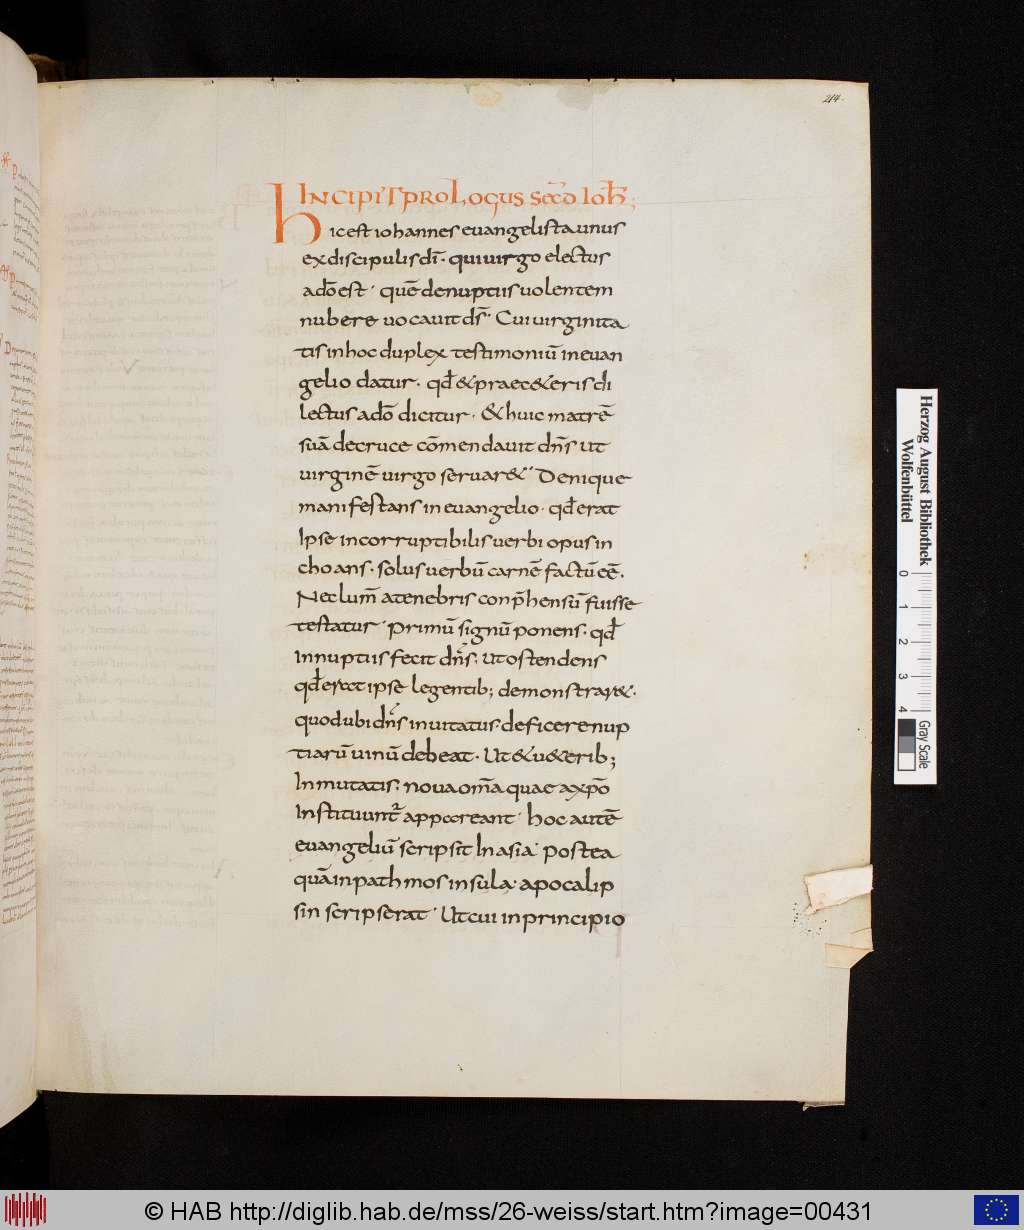 214.
INCIPIT PROLOGUS SECD̄ IOH̄;
Hic est iohannes euangelista unus
ex discipulis dī· qui uirgo electus
adō est· quē de nuptiis uolentem
nubere uocauit ds̄· Cui uirginita
tis in hoc duplex testimoniū in euan
gelio datur· qđ & prae c&eris di
lectus adō dicitur· & huic matrē
suā de cruce cōmendauit dn̄s ut
uirginē uirgo seruar&· Denique
manifestans in euangelio· qđ erat
Ipse incorruptibilis uerbi opus in
choans· solus uerbū carnē factū eē·
Nec lum̄ a tenebris conp̄hensū fuisse
testatur· Primū signū ponens· qđ
In nuptiis fecit dn̄s· Ut ostendens
qđ erat ipse legentib; demonstrar&·
quod ubi dn̄s inuitatus deficere nup
tiarū uinū debeat· Ut & u&erib;
Inmutatis· noua om̄a quae a xp̄o
Instituunt᷑ appareant· hoc autē
euangeliū scripsit In asia· postea
quā in pathmos insula· apocalip
sin scripserat· Ut cui in principio
Herzog August Bibliothek
Wolfenbüttel
0 1 2 3 4
Gray Scale
© HAB http://diglib.hab.de/mss/26-weiss/start.htm?image=00431